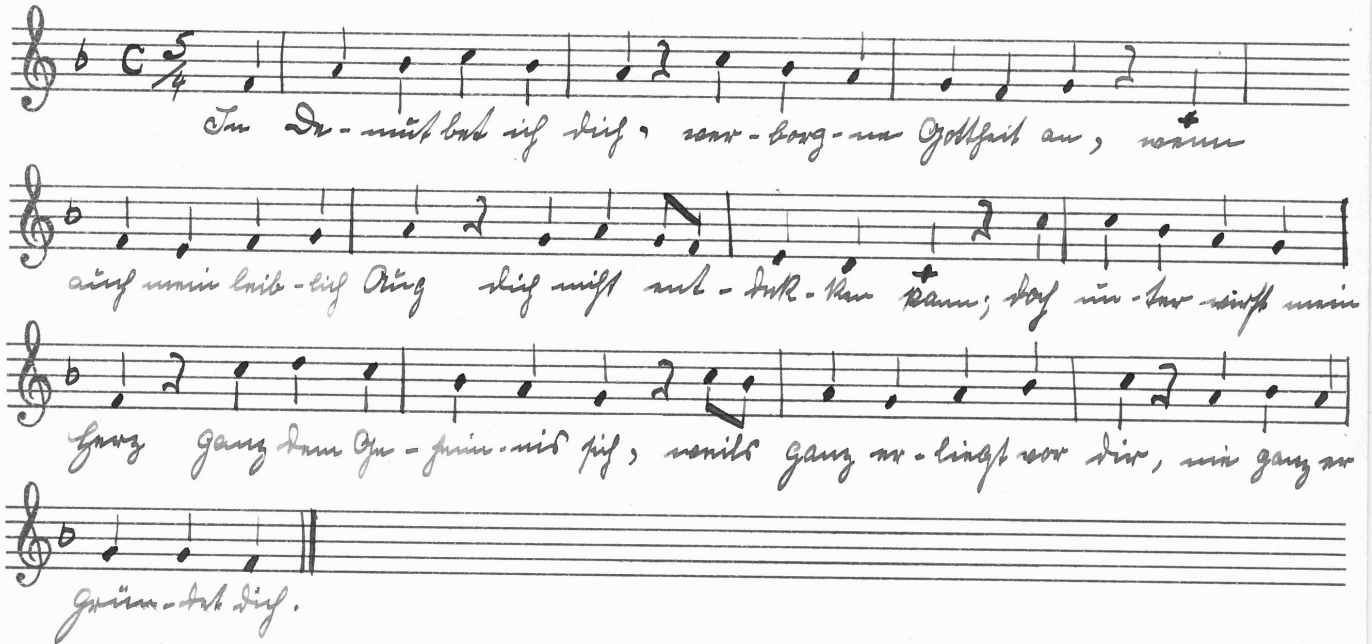 C 5/4
In De-mut bet ich dich, ver-borg-ne Gottheit an, wenn
auch mein leib-lich Aug dich nicht ent-dek-ken kann; doch un-ter wirft mein
Herz ganz dem Ge-heim-nis sich, weils ganz er-liegt vor dir, nie ganz er
grün-det dich.